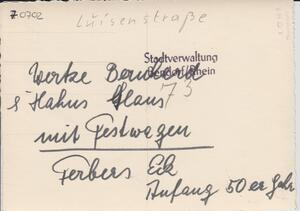 70702
Luisenstraße
Stadtverwaltung
Bendorf/Rhein
73
Werke
Hahns Klaus
mit Festwagen
Ferbers Eck
Anfang 50er Jahre